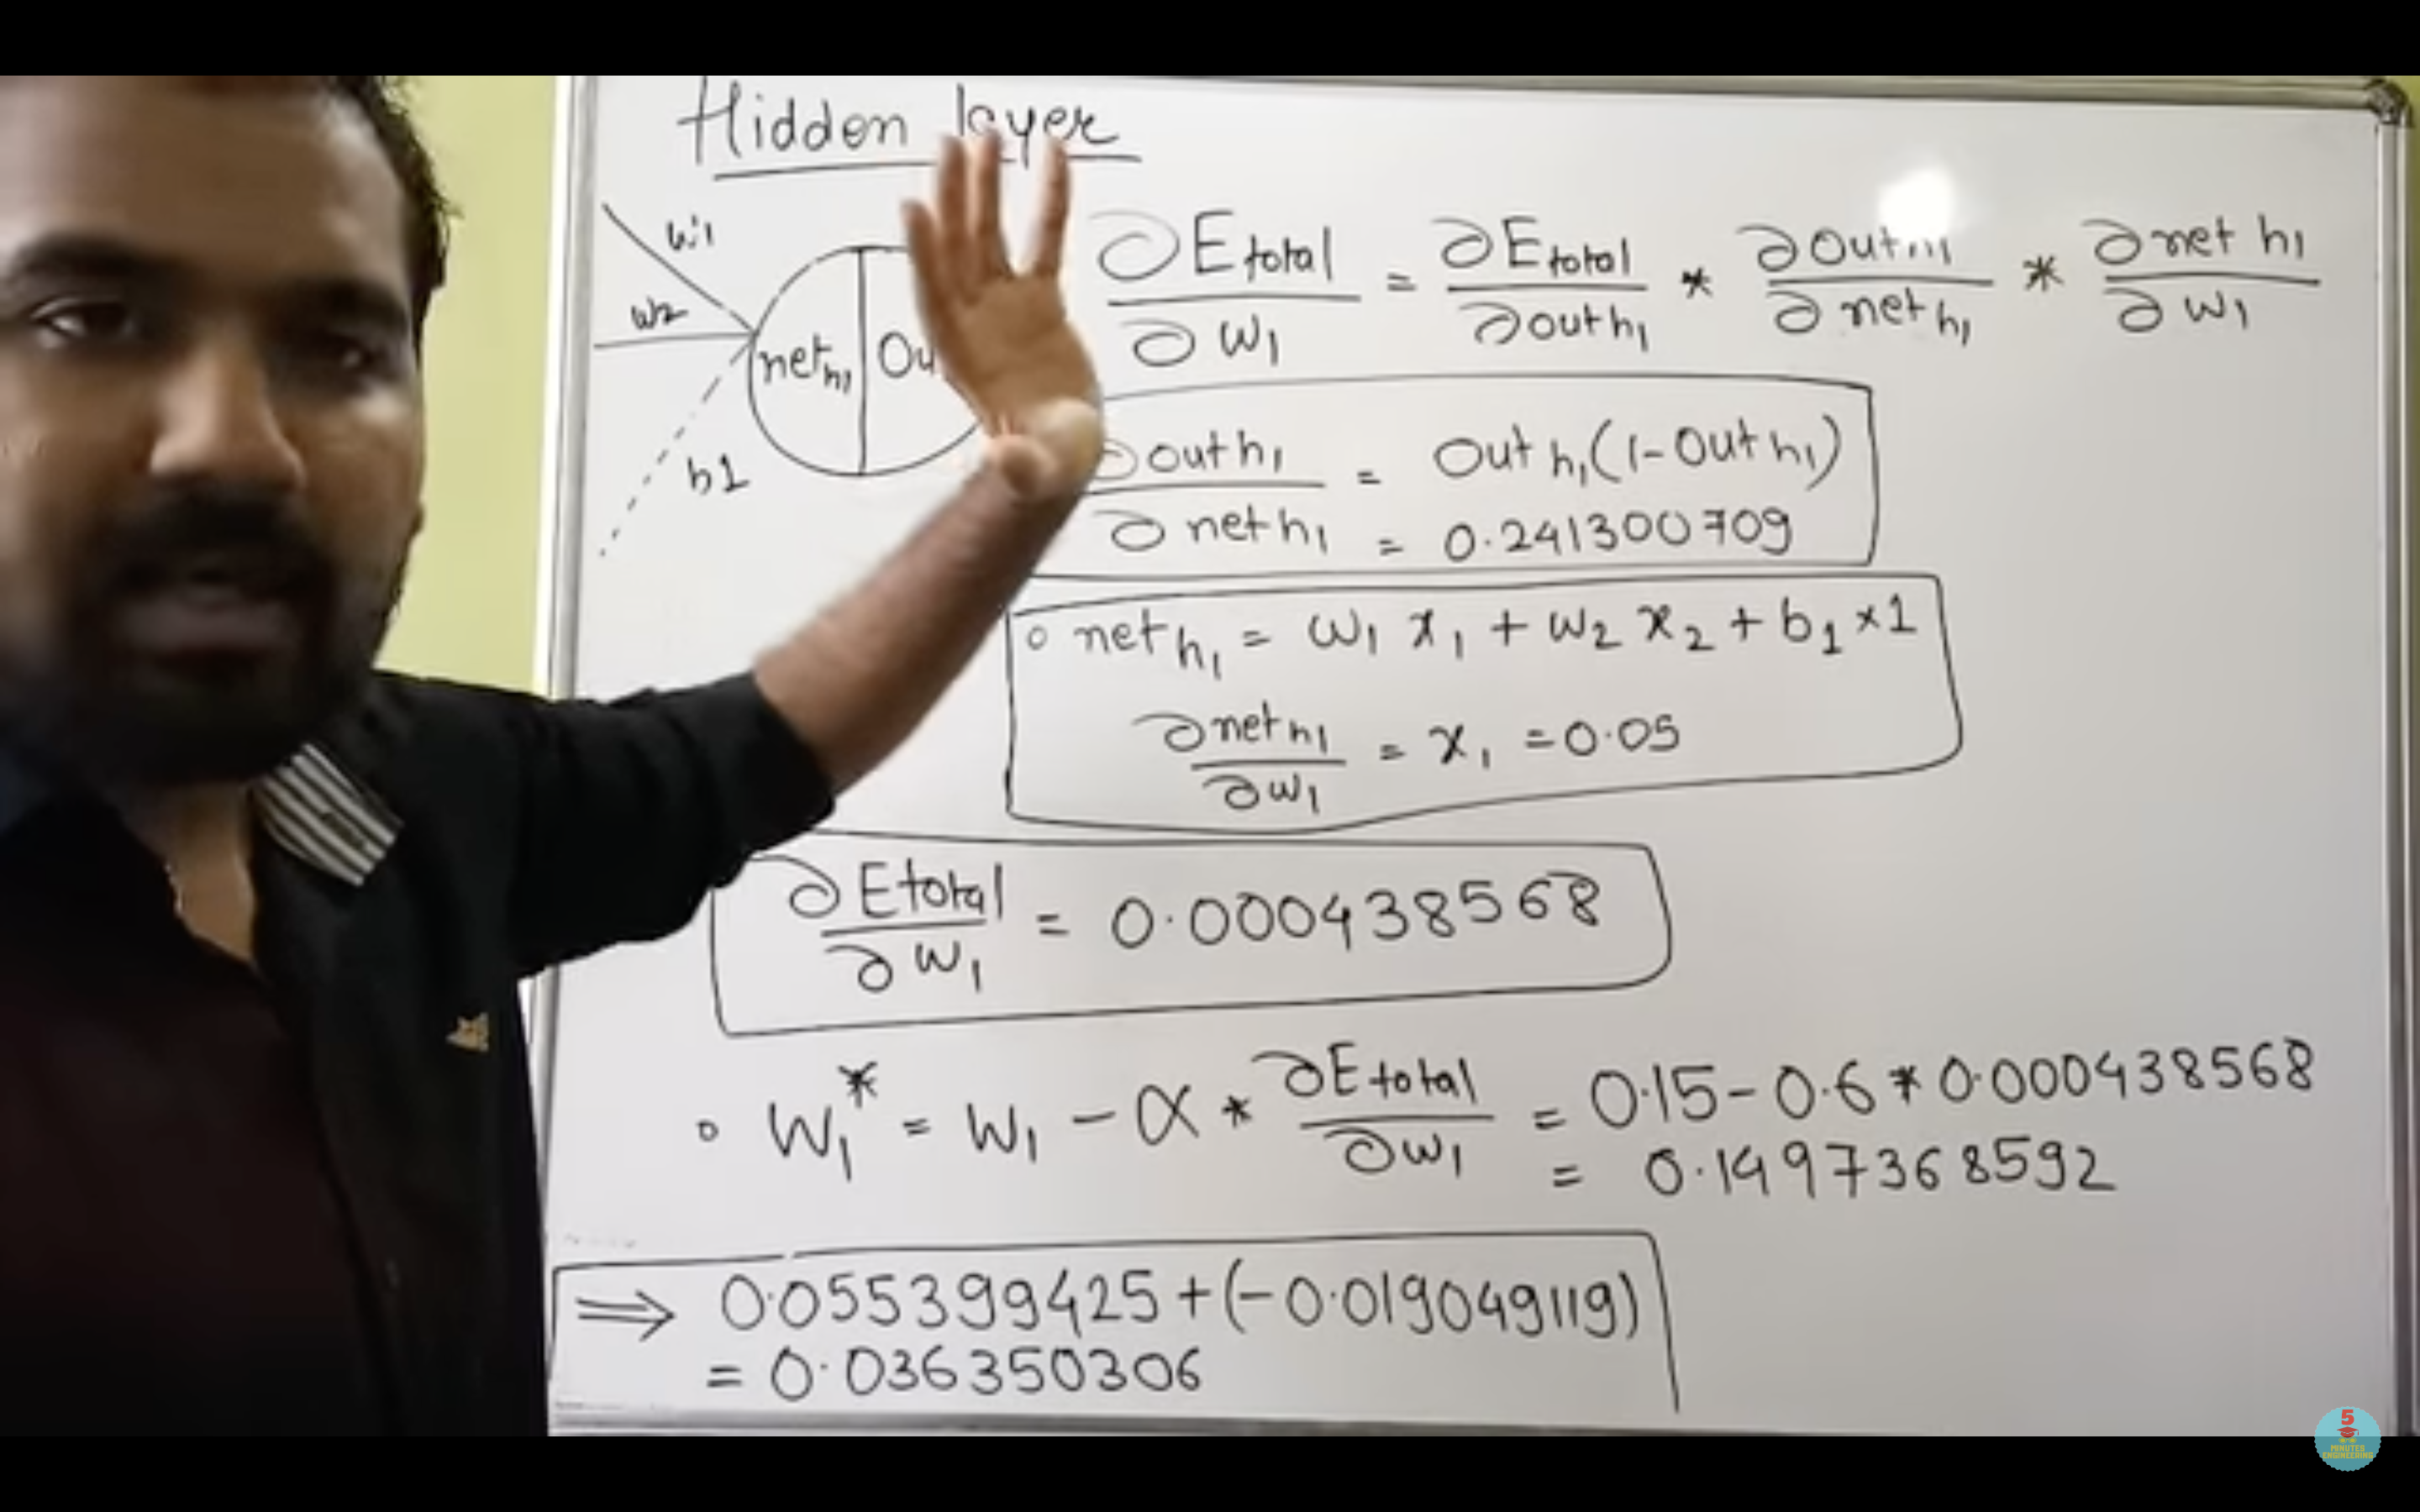 Hidden layer
w1
w2
b1
net h1 | Ou
∂Etotal/∂w1 = ∂Etotal/∂outh1 * ∂Outh1/∂neth1 * ∂net h1/∂w1
∂outh1/∂neth1 = Out h1(1-Out h1)
= 0.241300709
o net h1 = w1 x1 + w2 x2 + b1 ×1
∂net h1/∂w1 = x1 = 0.05
∂Etotal/∂w1 = 0.000438568
o W1* = W1 - α * ∂Etotal/∂w1 = 0.15-0.6*0.000438568
= 0.1497368592
⇒ 0.055399425+(-0.019049119)
= 0.036350306
5
MINUTES
ENGINEERING